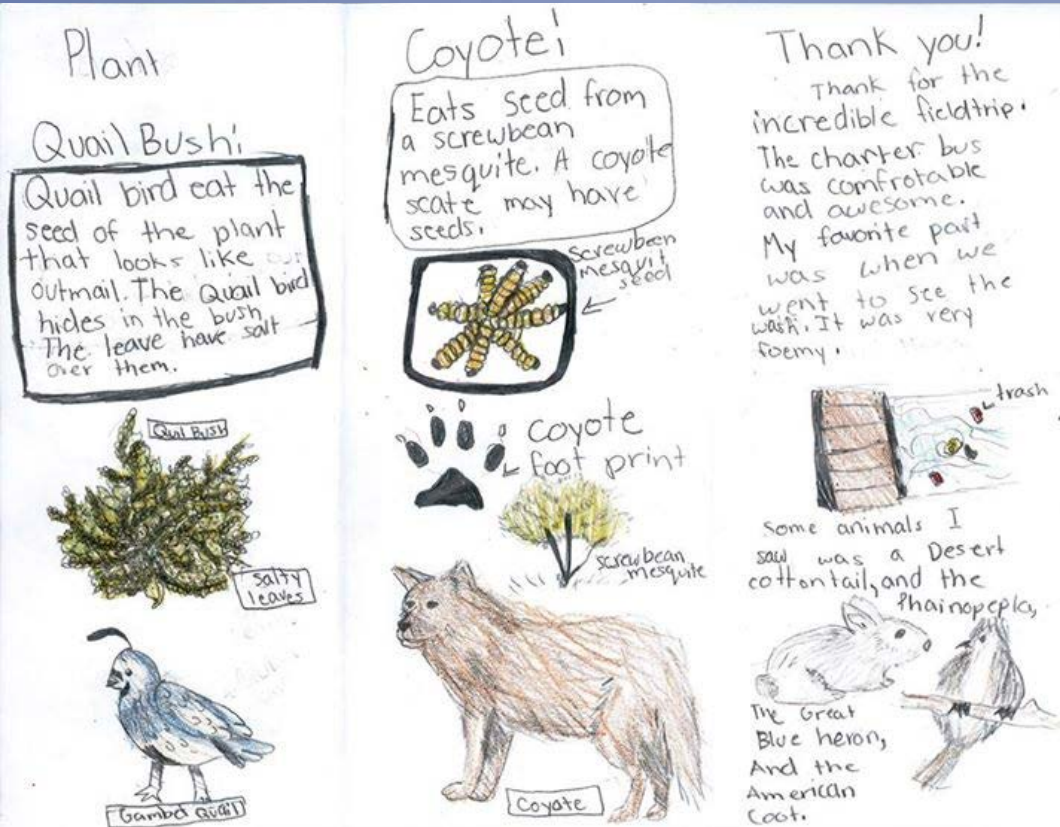 Plant
Quail Bush:
Quail bird eat the
seed of the plant
that looks like
outmail. The Quail bird
hides in the bush
The leave have salt
over them.
Quil Bush
salty
leaves
Gambel Quail
Coyote!
Eats seed from
a screwbean
mesquite. A coyote
scate may have
seeds.
screwbeen
mesquit
seed
coyote
foot print
screwbean
mesquite
Coyote
Thank you!
Thank for the
incredible fieldtrip.
The charter bus
was comfrotable
and awesome.
My favorite part
was when we
went to see the
wash. It was very
foemy.
trash
some animals I
saw was a Desert
cottontail, and the
Phainopepla,
The Great
Blue heron,
And the
American
Coot.